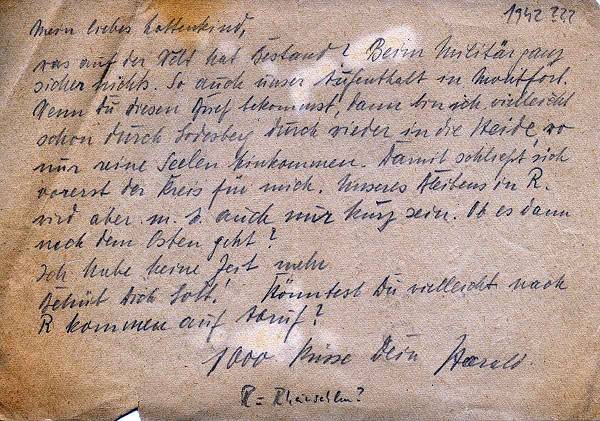 1942 ???
Mein liebes Lottenkind,
was auf der Welt hat Bestand? Beim Militär ganz
sicher nichts. So auch unser Aufenthalt in Montfort.
Wenn Du diesen Brief bekommst, dann bin ich vielleicht
schon durch Godesberg durch wieder in die Heide, wo
nur reine Seelen hinkommen. Damit schließt sich
vorerst der Kreis für mich. Unseres Bleibens in R.
wird aber m. E. auch nur kurz sein. Ob es dann
nach dem Osten geht?
Ich habe keine Zeit mehr
Behüt Dich Gott! Könntest Du vielleicht nach
R kommen auf Abruf?
1000 Küsse Dein Harald
R =